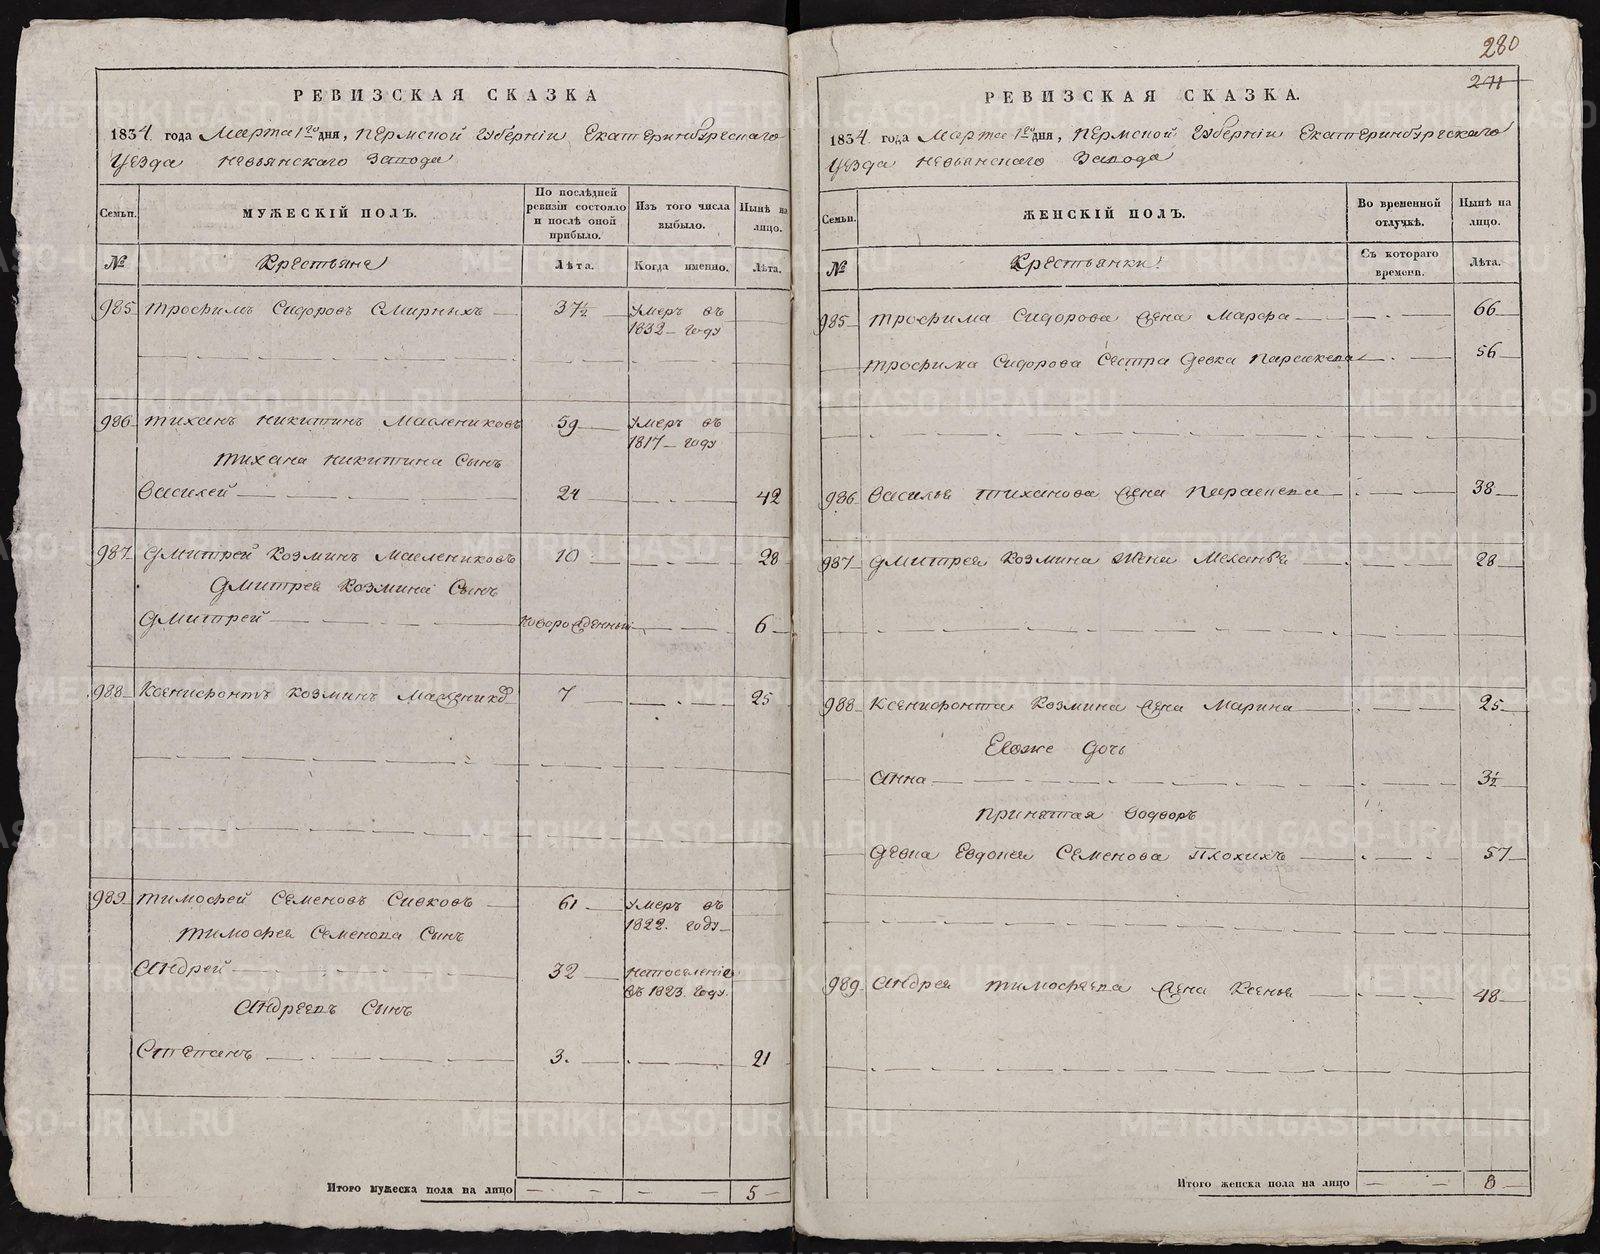 РЕВИЗСКАЯ СКАЗКА
1834 года Марта 1го дня, Пермской Губерніи Екатеринбургскаго
Уезда Невьянскаго Завода
Семьи.
МУЖЕСКІЙ ПОЛЪ.
По послѣдней ревизіи состояло и послѣ оной прибыло.
Изъ того числа выбыло.
Нынѣ на лицо.
№
Крестьяне
Лѣта.
Когда именно.
Лѣта.
985 Трофимъ Сидоровъ Смирныхъ 37½ Умеръ въ
1832 году
986 Тиханъ Никитинъ Маслениковъ 59 Умеръ въ
1817 году
Тихана Никитина Сынъ
Василей 24 42
987 Дмитрей Козминъ Маслениковъ 10 28
Дмитрея Козмина Сынъ
Дмитрей новорожденный 6
988 Ксенифонтъ Козминъ 7 25
989 Тимофей Семеновъ Сивковъ 61 Умеръ въ
1822. году
Тимофея Семенова Сынъ
Андрей 32 напоселеніе
въ 1823. году.
Андреевъ Сынъ
Степанъ 3. 21
Итого мужеска пола на лицо 5
280
271
РЕВИЗСКАЯ СКАЗКА.
1834 года Марта 1го дня, Пермской Губерніи Екатеринбургскаго
Уезда Невьянскаго Завода
Семьи.
ЖЕНСКІЙ ПОЛЪ.
Во временной отлучкѣ.
Нынѣ на лицо.
№
Крестьянки
Съ котораго времени.
Лѣта.
985 Трофима Сидорова Жена Марфа 66
Трофима Сидорова Сестра девка Парасковья 56
986 Василья Тиханова Жена 38
987 Дмитрея Козмина Жена Меланья 28
988 Ксенифонта Козмина Жена Марина 25
Евоже дочь
Анна 3½
Принятая Водворъ
девка Евдокея Семенова Плохихъ 57
989 Андрея Тимофеева Жена Ксенья 48
Итого женска пола на лицо 8
METRIKI.GASO-URAL.RU